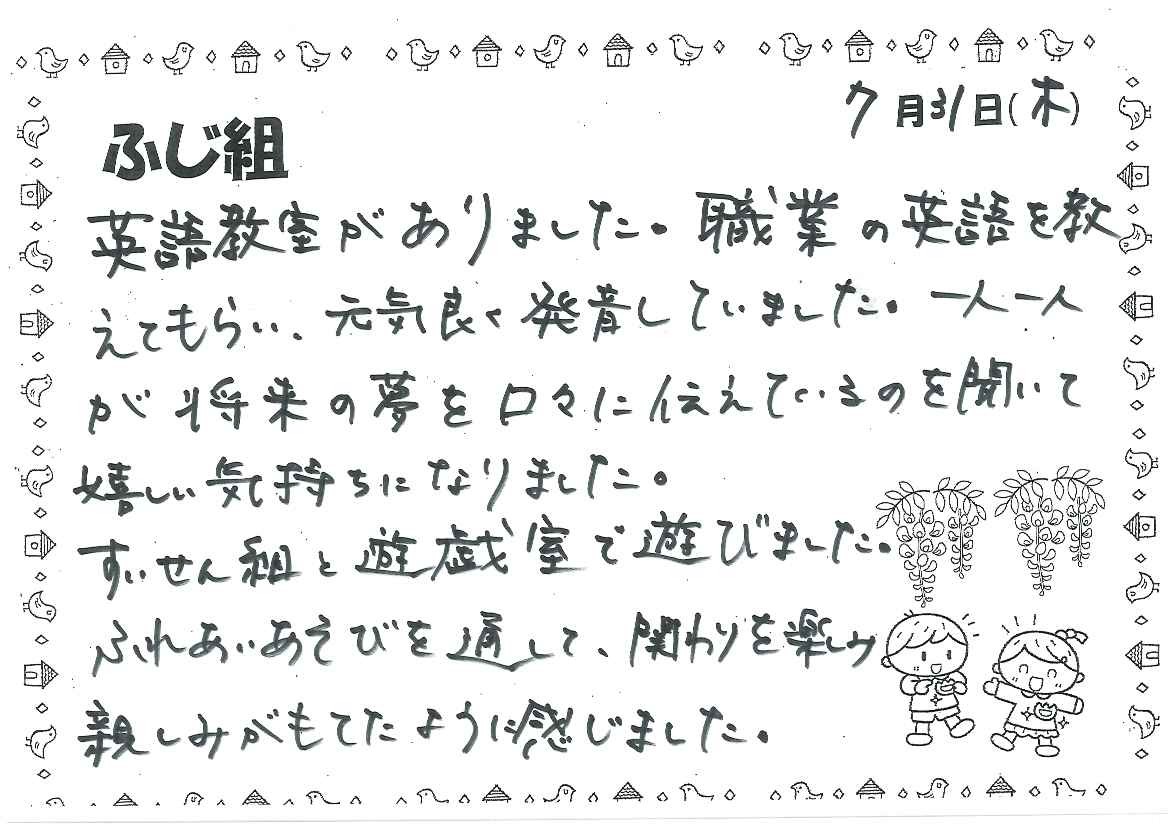 7月31日(木)
ふじ組
英語教室がありました。職業の英語を教
えてもらい、元気良く発音していました。一人一人
が将来の夢を口々に伝えているのを聞いて
嬉しい気持ちになりました。
すいせん組と遊戯室で遊びました。
ふれあいあそびを通して、関わりを楽しみ
親しみがもてたように感じました。